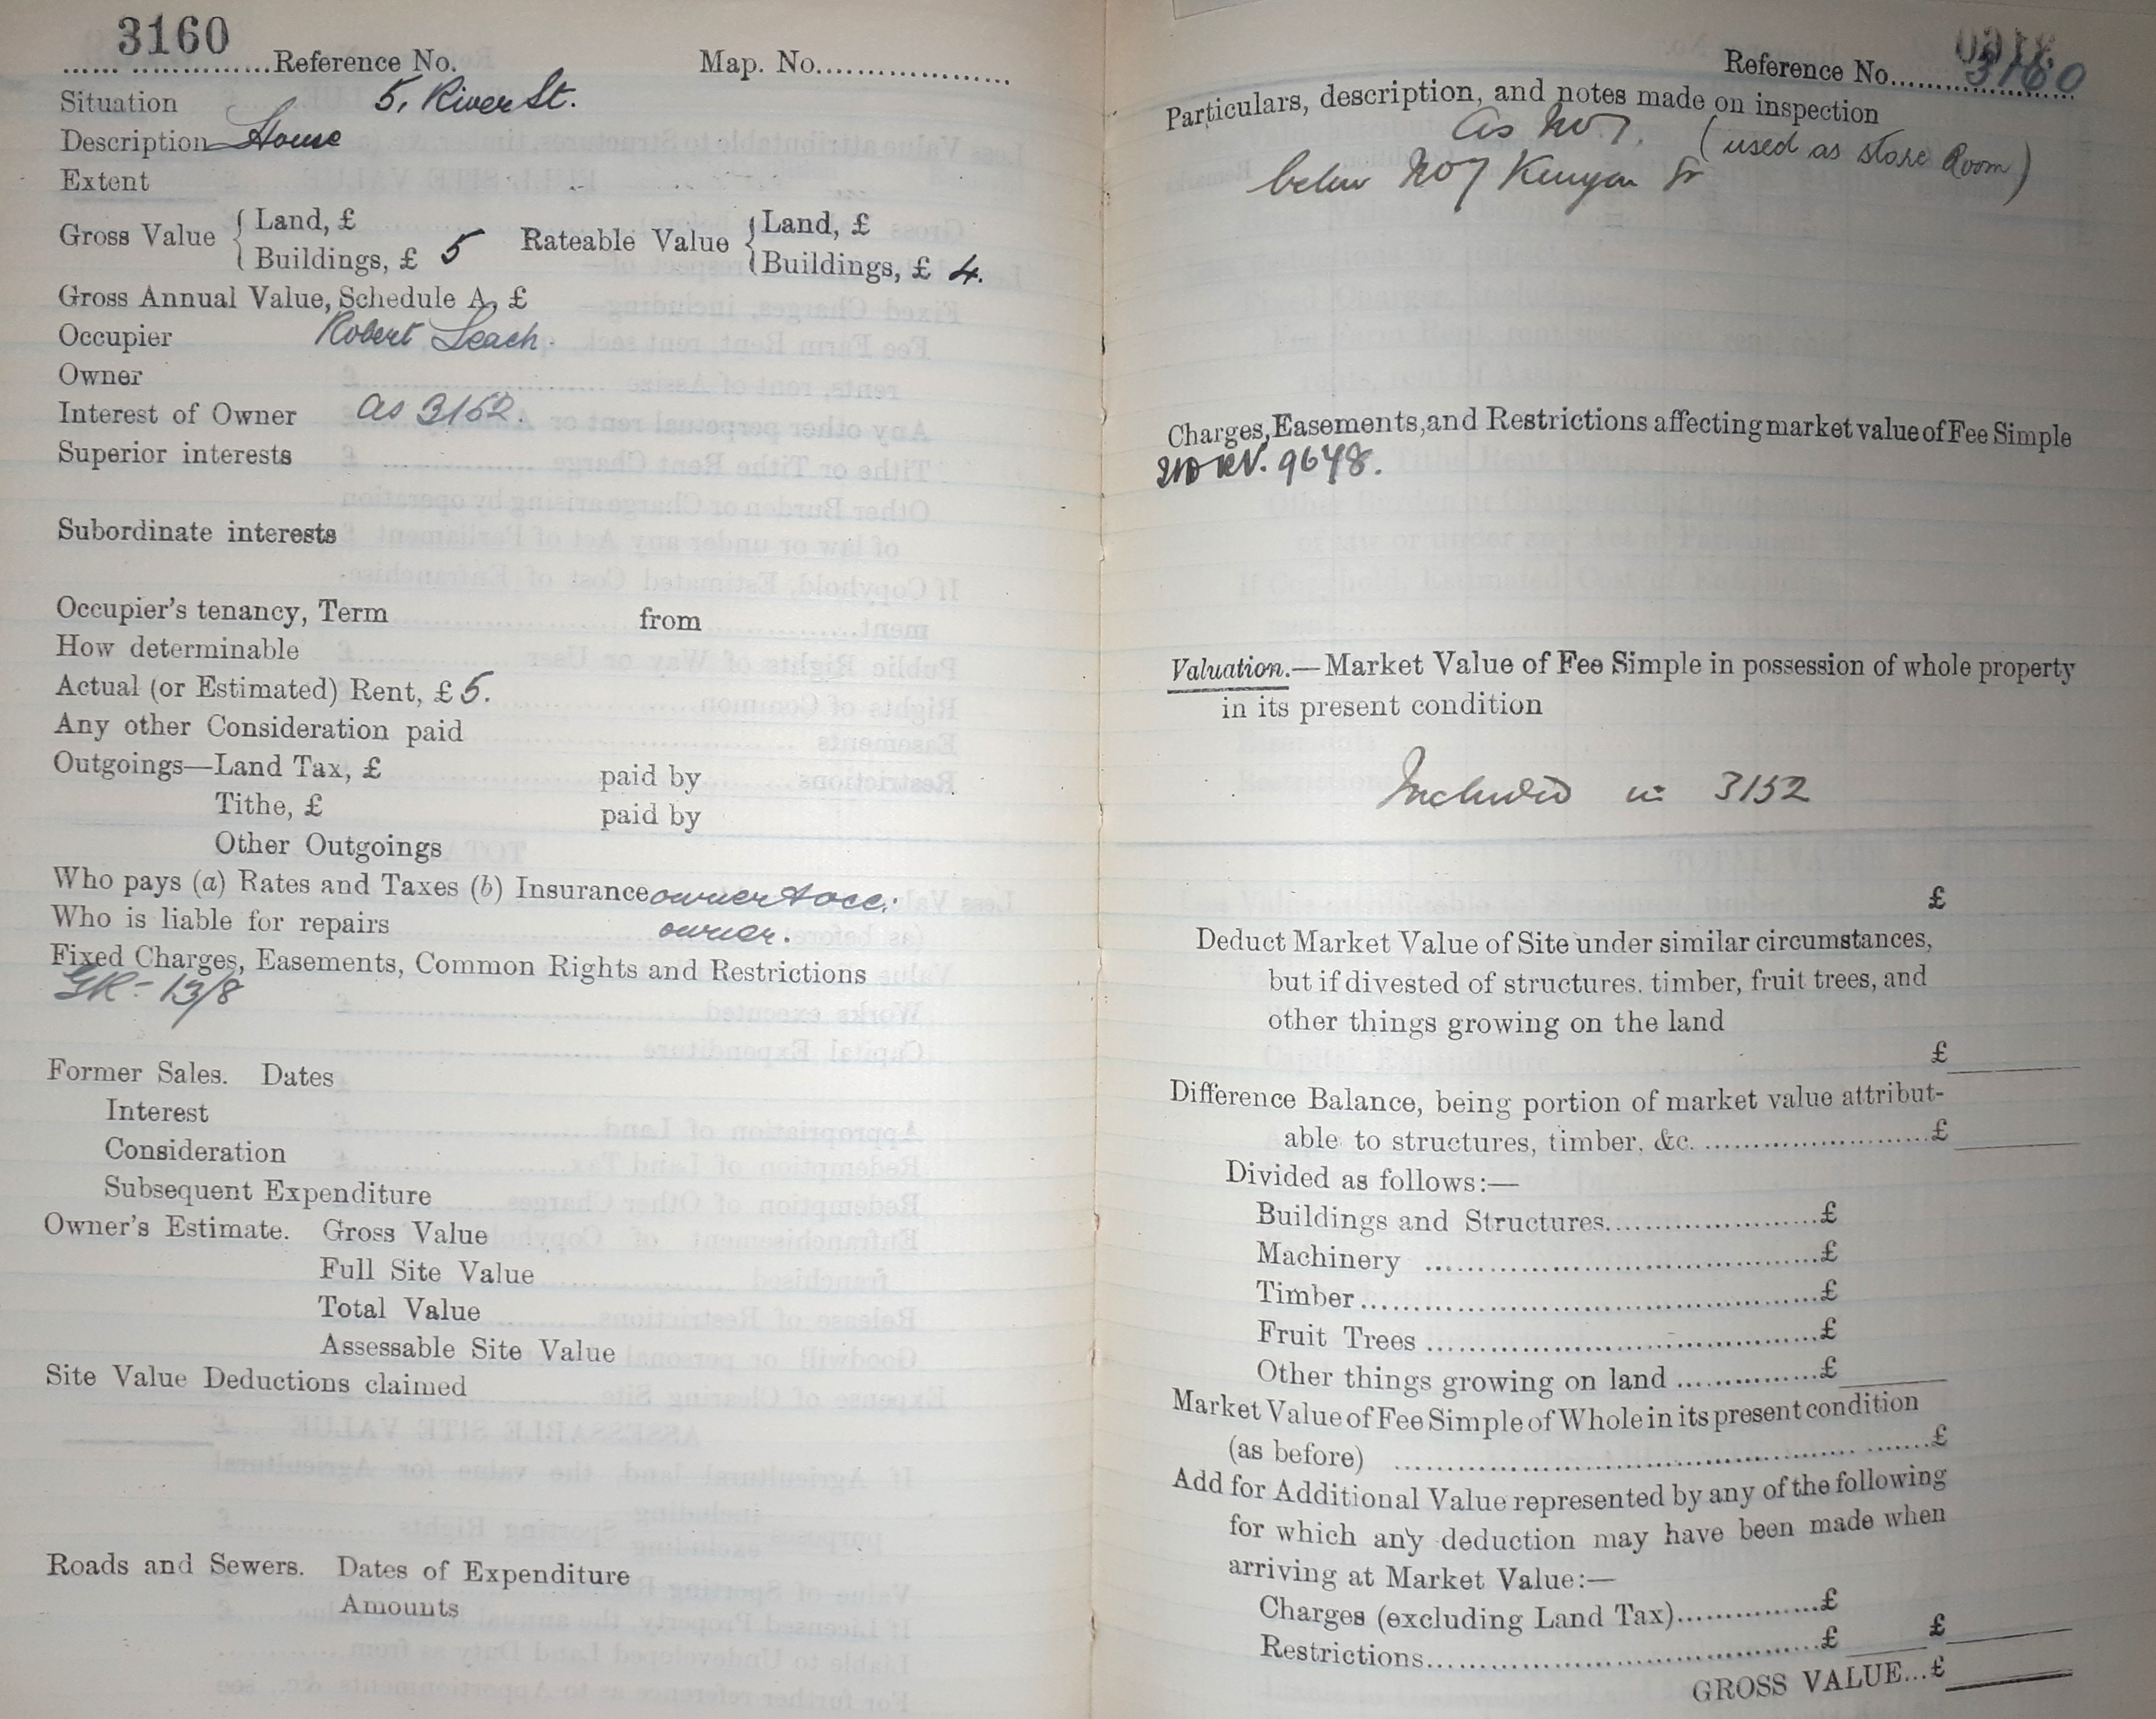 3160
...... ..............Reference No.	Map. No....................
Situation 5, River St.
Description House
Extent
Gross Value { Land, £ Rateable Value { Land, £
Buildings, £ 5 Buildings, £ 4.
Gross Annual Value, Schedule A, £
Occupier Robert Leach.
Owner
Interest of Owner as 3152.
Superior interests
Subordinate interests
Occupier's tenancy, Term from
How determinable
Actual (or Estimated) Rent, £ 5.
Any other Consideration paid
Outgoings—Land Tax, £ paid by
Tithe, £ paid by
Other Outgoings
Who pays (a) Rates and Taxes (b) Insurance owner & occ:
Who is liable for repairs owner.
Fixed Charges, Easements, Common Rights and Restrictions
GR- 13/8
Former Sales. Dates
Interest
Consideration
Subsequent Expenditure
Owner's Estimate. Gross Value
Full Site Value
Total Value
Assessable Site Value
Site Value Deductions claimed
Roads and Sewers. Dates of Expenditure
Amounts
Reference No. 3160
Particulars, description, and notes made on inspection
as No 7. (used as store Room)
below No 7 Kenyon St
Charges, Easements, and Restrictions affecting market value of Fee Simple
9648.
Valuation.—Market Value of Fee Simple in possession of whole property
in its present condition
Included in 3152
£
Deduct Market Value of Site under similar circumstances,
but if divested of structures. timber, fruit trees, and
other things growing on the land
£
Difference Balance, being portion of market value attribut-
able to structures, timber, &c. ..........................£
Divided as follows:—
Buildings and Structures.........................£
Machinery ..............................................£
Timber......................................................£
Fruit Trees .............................................£
Other things growing on land ................£
Market Value of Fee Simple of Whole in its present condition
(as before) ............................................................£
Add for Additional Value represented by any of the following
for which any deduction may have been made when
arriving at Market Value:—
Charges (excluding Land Tax)................£
Restrictions..............................................£ £
GROSS VALUE...£